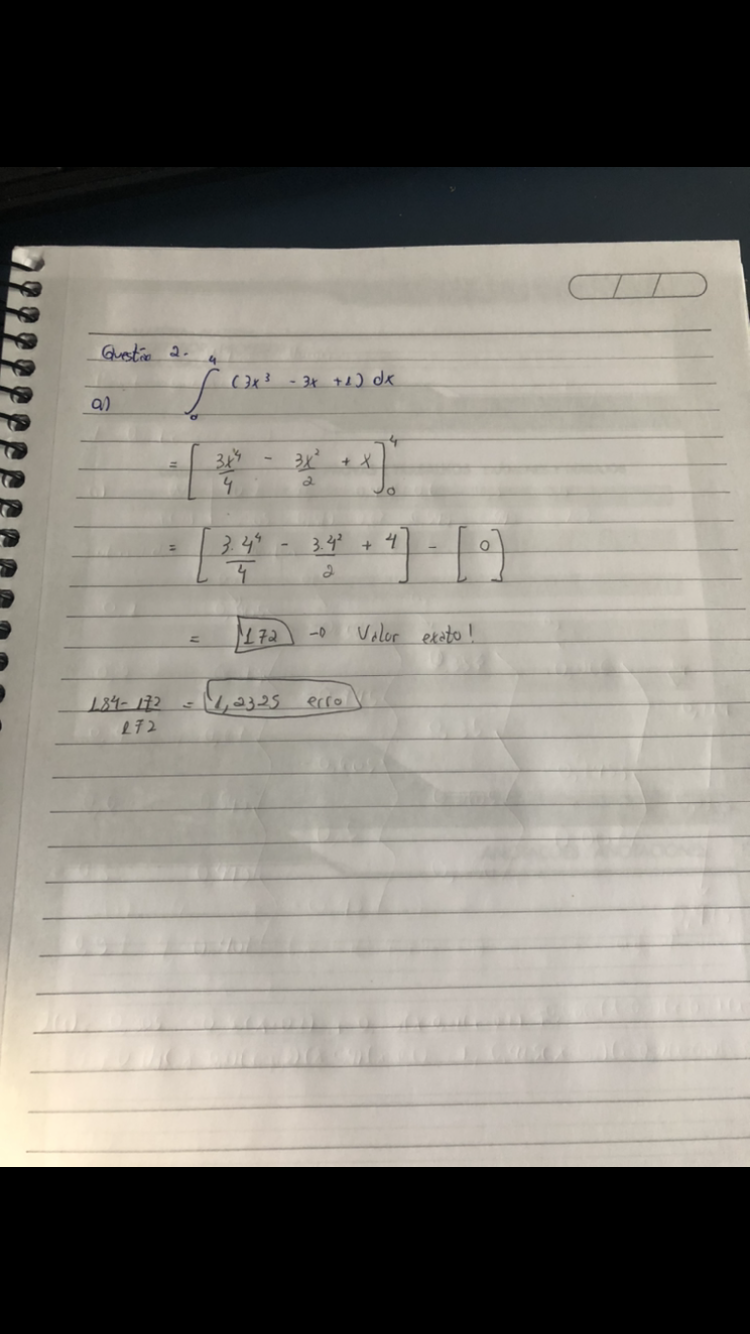 Questão 2.
a) ∫₀⁴ (3x³ - 3x + 1) dx
= [3x⁴/4 - 3x²/2 + x]₀⁴
= [3.4⁴/4 - 3.4²/2 + 4] - [0]
= 172 → Valor exato!
184-172/172 = 1,2325 erro